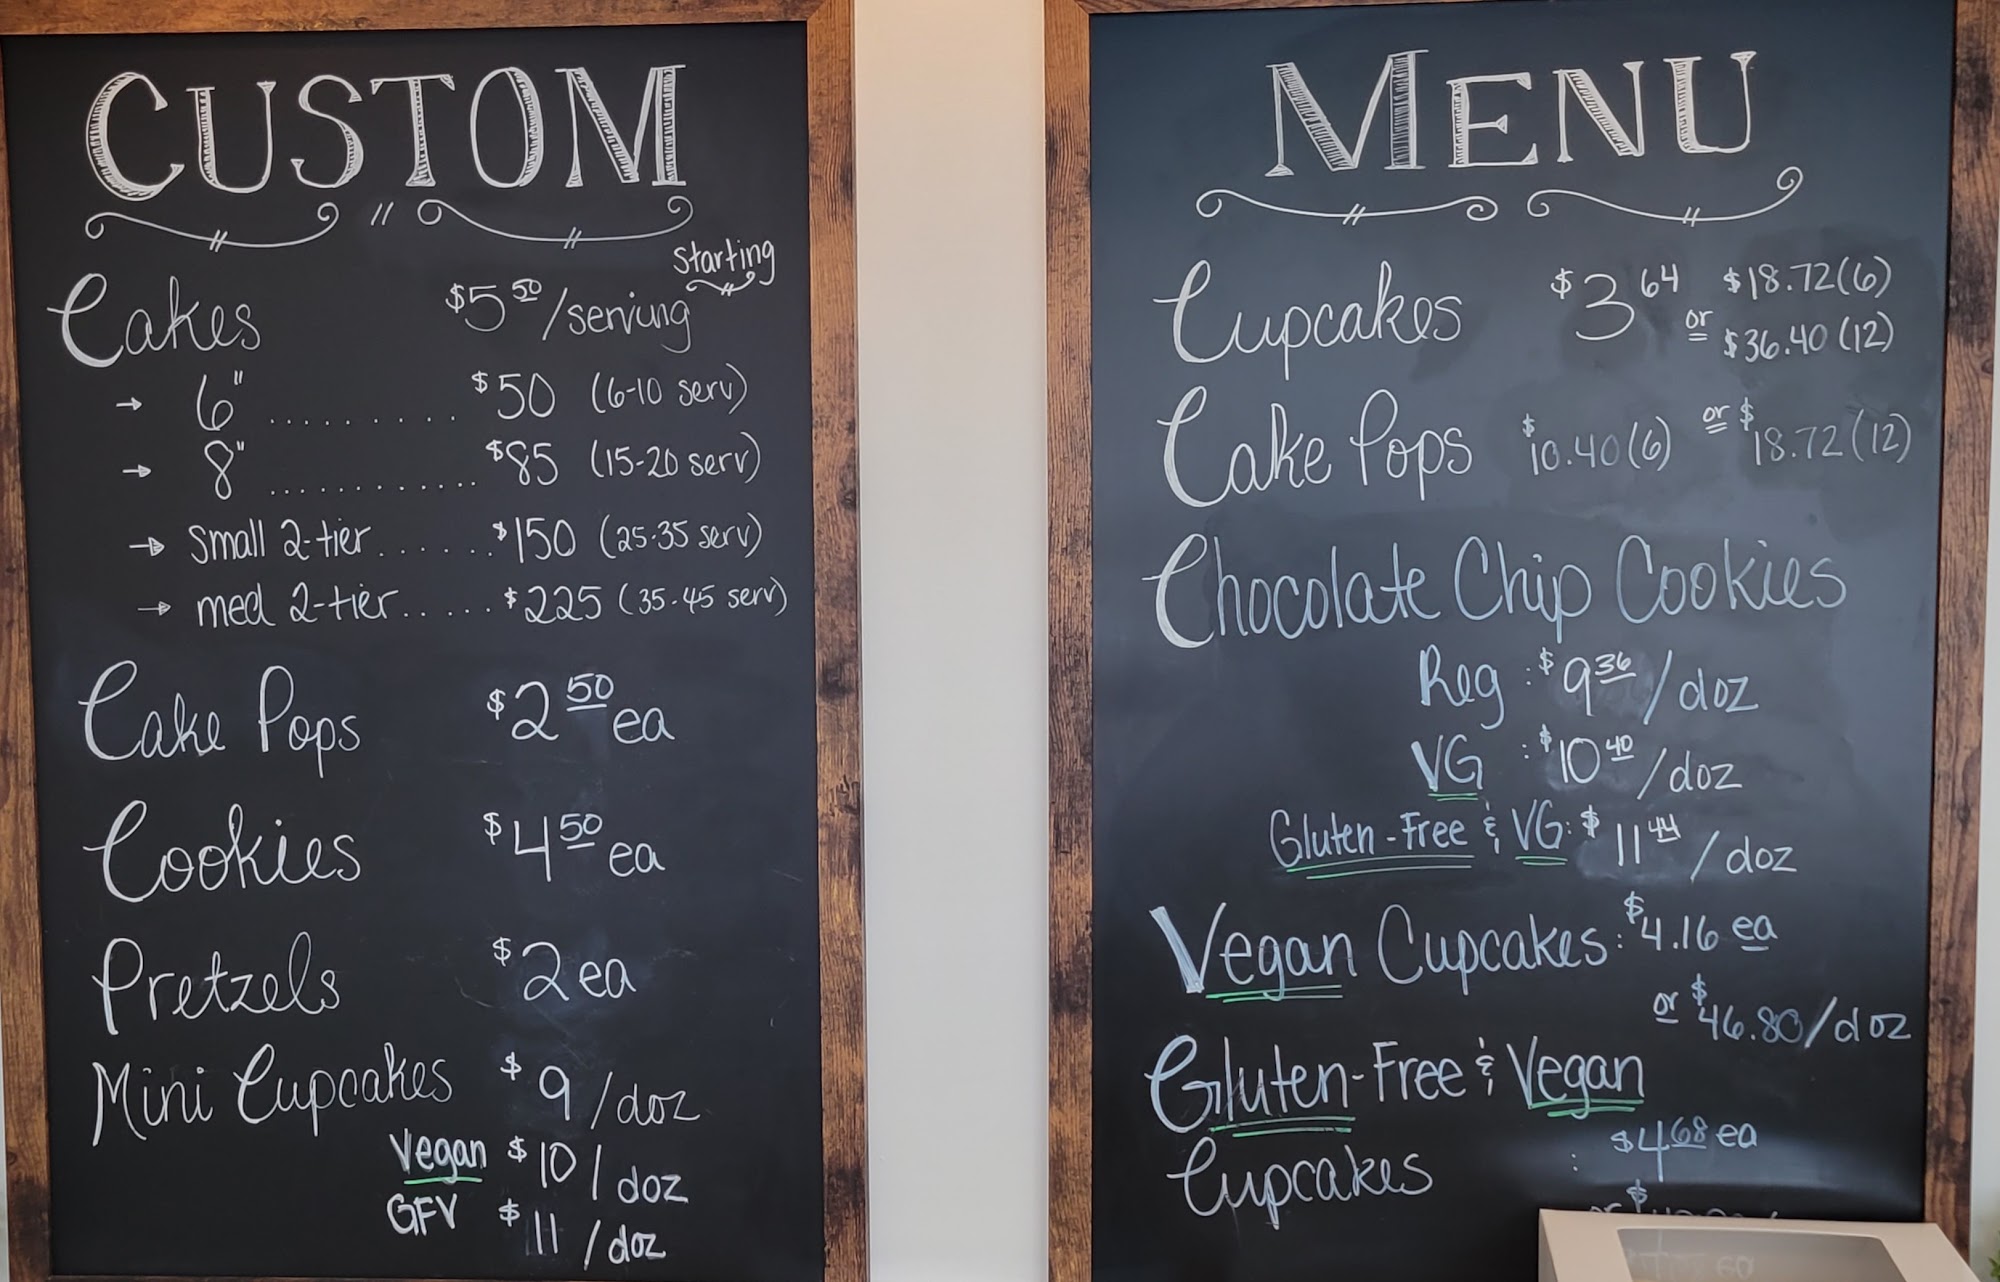 CUSTOM
starting
Cakes $5.50/serving
→ 6" .......... $50 (6-10 serv)
→ 8" ............ $85 (15-20 serv)
→ small 2-tier ...... $150 (25-35 serv)
→ med 2-tier ...... $225 (35-45 serv)
Cake Pops $2.50 ea
Cookies $4.50 ea
Pretzels $2 ea
Mini Cupcakes $9/doz
Vegan $10/doz
GFV $11/doz
MENU
Cupcakes $3.64 or $18.72 (6)
$36.40 (12)
Cake Pops $10.40 (6) or $18.72 (12)
Chocolate Chip Cookies
Reg : $9.36/doz
VG : $10.40/doz
Gluten-Free & VG: $11.44/doz
Vegan Cupcakes: $4.16 ea
or $46.80/doz
Gluten-Free & Vegan
Cupcakes : $4.68 ea
or $